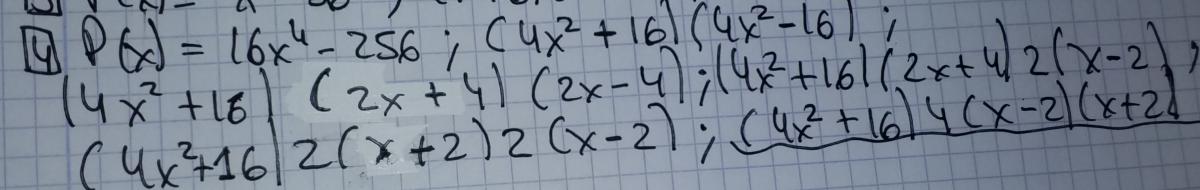 4 P(x) = 16x⁴ - 256 ; (4x² + 16) (4x² - 16) ;
(4x² + 16) (2x + 4) (2x - 4) ; (4x² + 16) (2x + 4) 2(x - 2) ;
(4x² + 16) 2(x + 2) 2(x - 2) ; (4x² + 16) 4(x - 2)(x + 2)